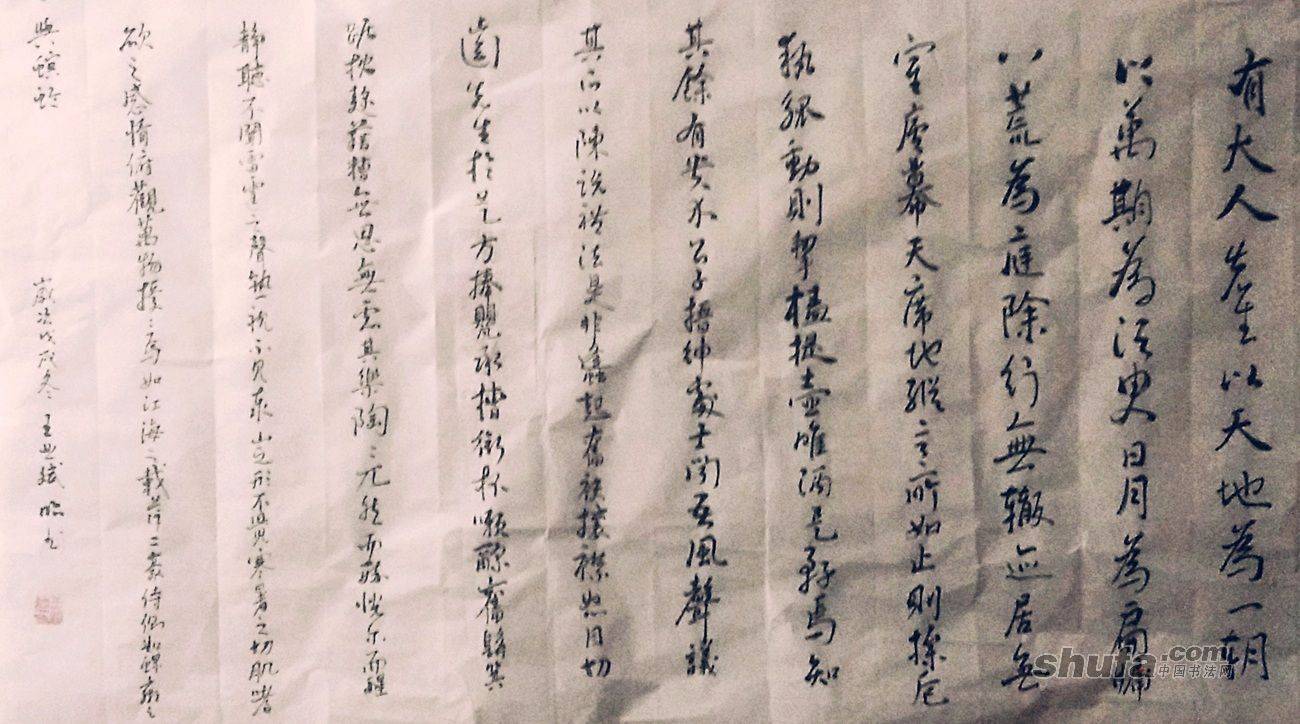 有大人先生以天地為一朝
以萬期為須臾日月為扃牖
八荒為庭除行無轍迹居無
室廬幕天席地縱意所如止則操卮
執觚動則挈榼提壺唯酒是務焉知
其餘有貴介公子搢紳處士聞吾風聲議
其所以陳說禮法是非蠭起奮袂攘襟怒目切
齒先生於是方捧甖承槽銜杯漱醪奮髯箕
踞枕麴藉糟無思無慮其樂陶〻兀然而醉恍尔而醒
靜聽不聞雷霆之聲孰視不見泰山之形不覺寒暑之切肌嗜
欲之感情俯觀萬物擾〻焉如江海之載萍二豪侍側如蜾蠃之
與螟蛉
歲次戊戌冬王世斌臨书
shufa.com
中国书法网